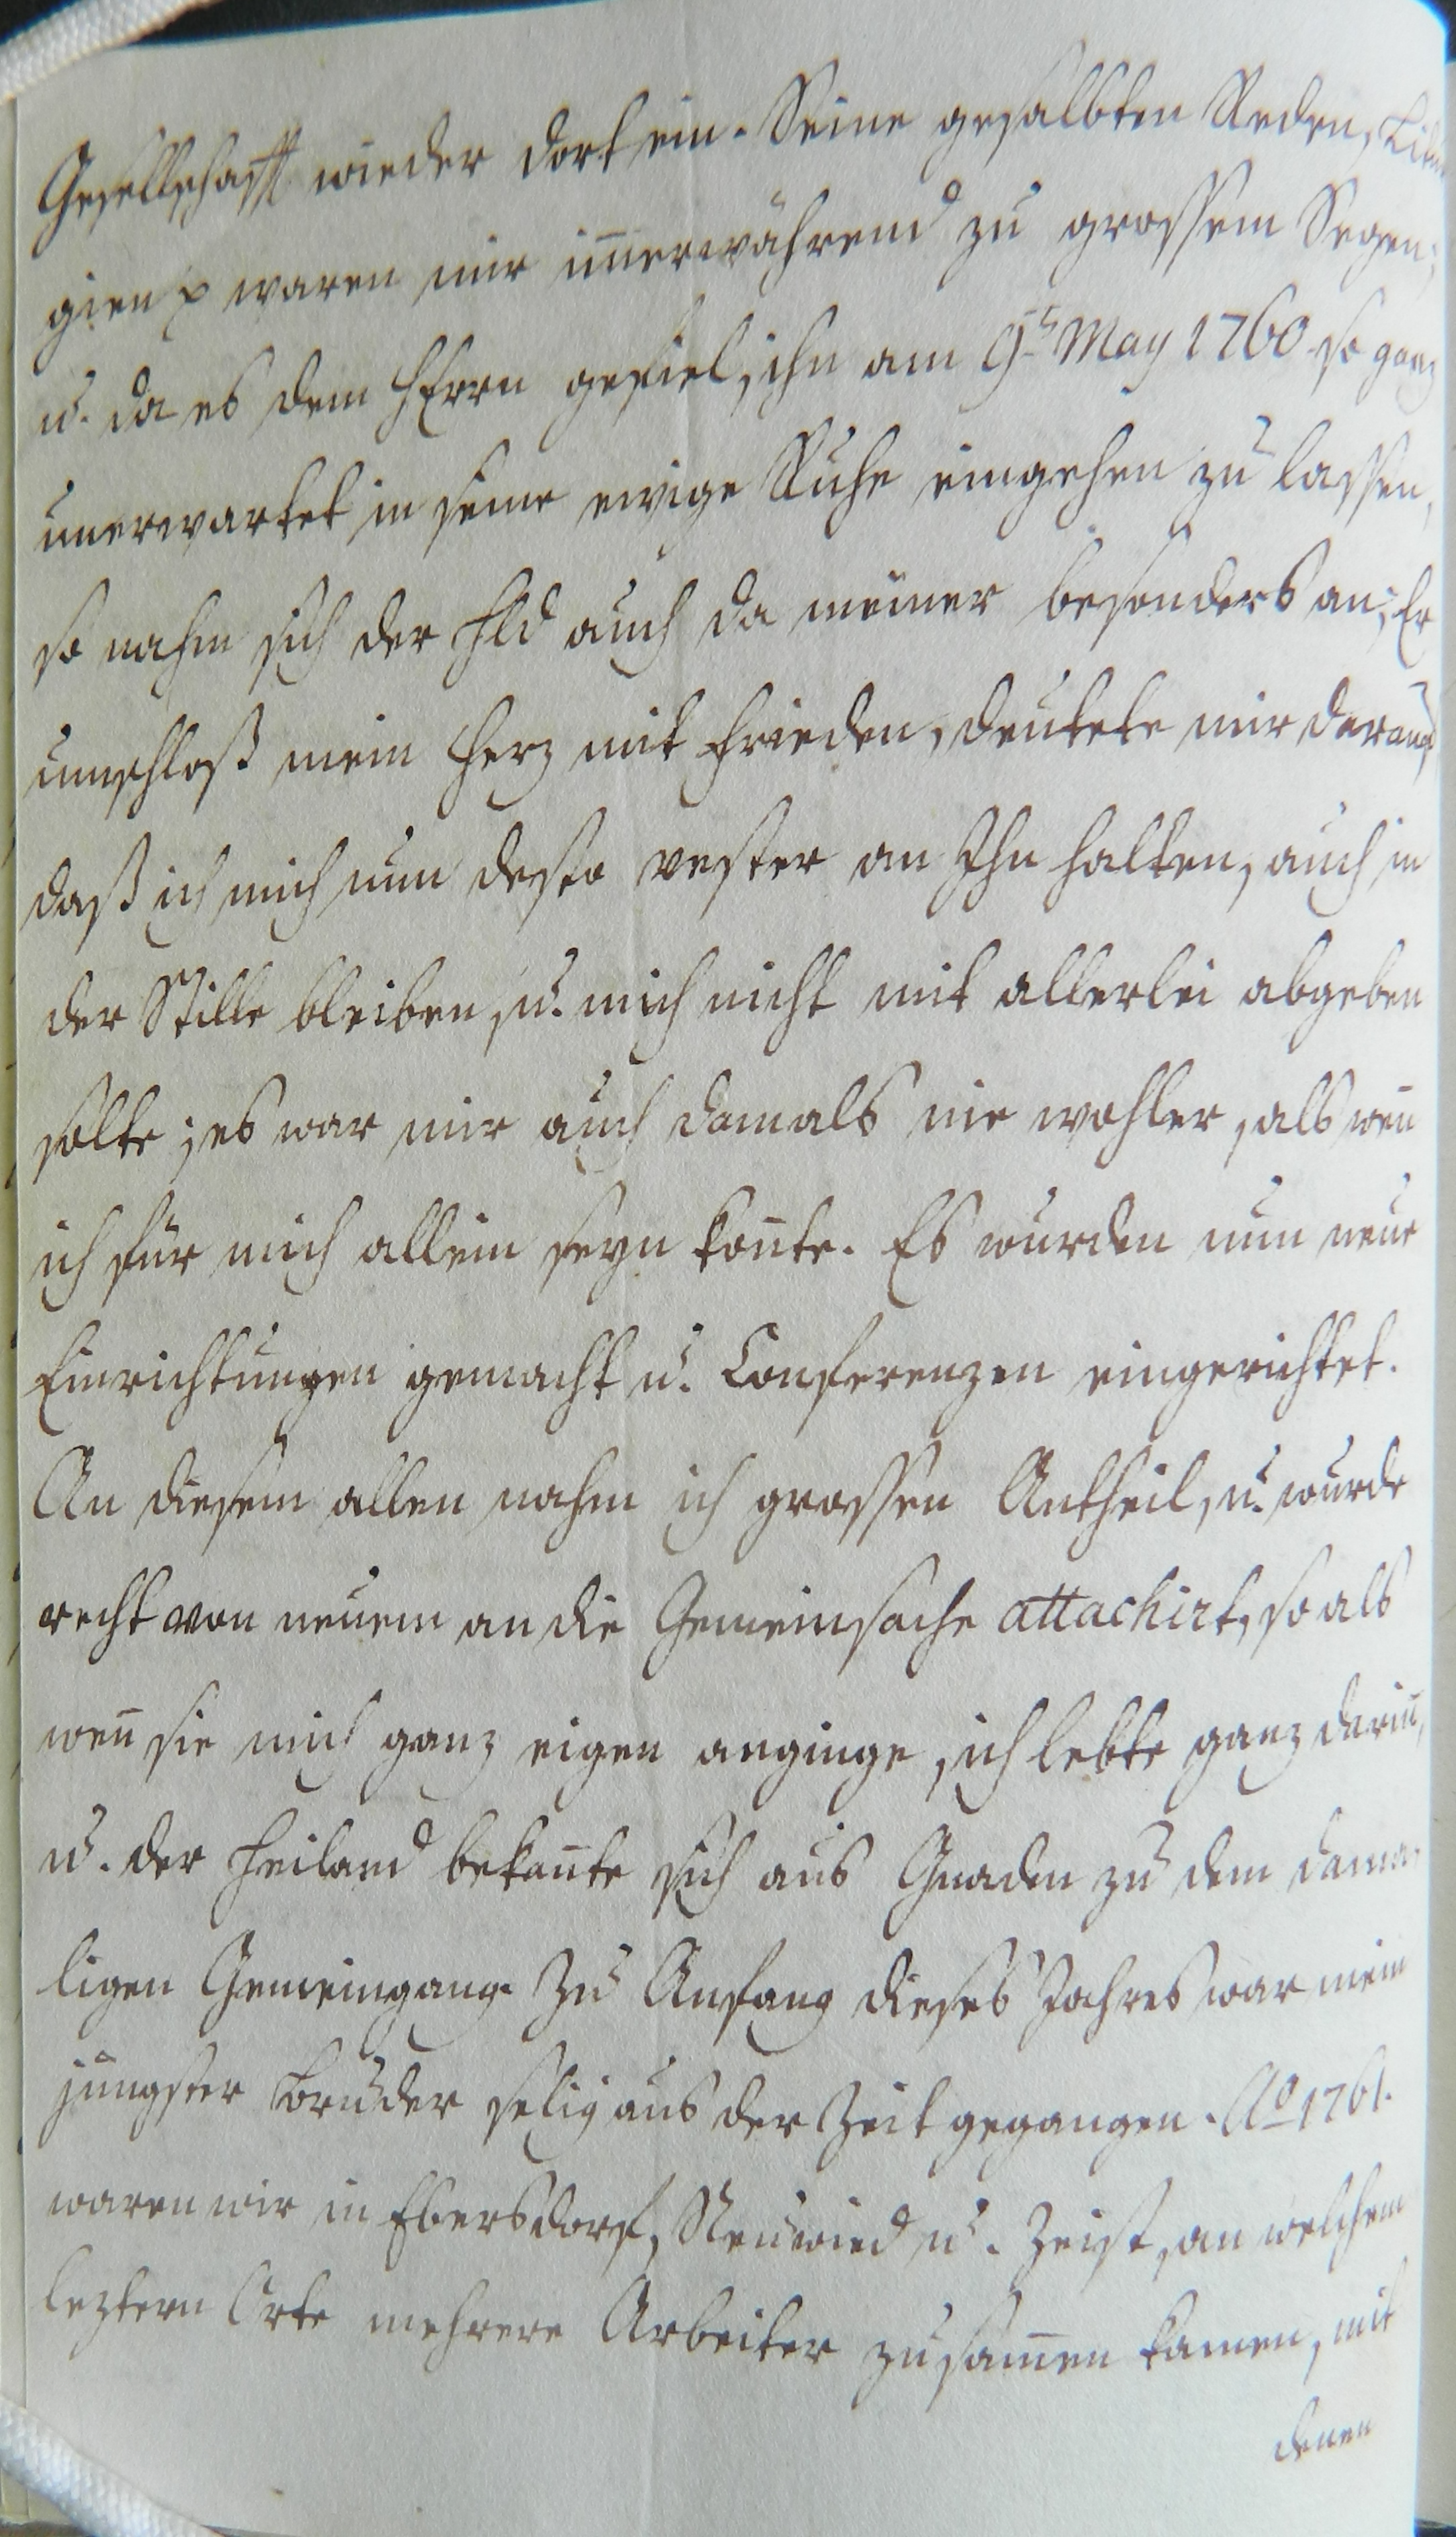 Gesellschafft wieder dort ein. Seine gesalbten Reden, Litur
gien p waren mir im̅erwährend zu grossem Segen;
u. da es dem HErrn gefiel, ihn am 9ᵗ May 1760 so ganz
unerwartet in seine ewige Ruhe eingehen zu lassen,
so nahm sich der Hld auch da meiner besonders an; Er
umschloß mein Herz mit Frieden, deutete mir darauf
daß ich mich nun desto vester an Ihn halten, auch in
der Stille bleiben, u. mich nicht mit allerlei abgeben
solte; es war mir auch damals nie wohler, als wen̅
ich für mich allein seyn kon̅te. Es wurden nun neue
Einrichtungen gemacht u. Conferenzen eingerichtet.
An diesem allen nahm ich grossen Antheil, u. wurde
recht von neuem an die Gemeinsache attachirt, so als
wen̅ sie mich ganz eigen anginge, ich lebte ganz darin̅,
u. der Heiland bekan̅te sich aus Gnaden zu dem dama-
ligen Gemeingang. Zu Anfang dieses Jahres war mein
jüngster Bruder selig aus der Zeit gegangen. Aº 1761.
waren wir in Ebersdorf, Neuwied u. Zeist, an welchem
leztern Orte mehrere Arbeiter zusam̅en kamen, mit
denen